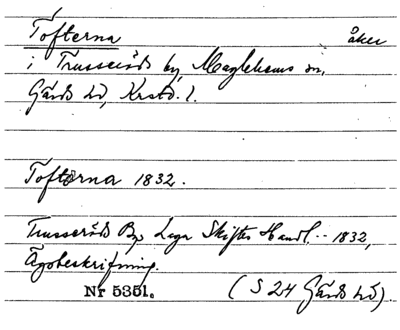 Tofterna åker
i Trusseröds by, Maglehems sn,
Gärds hd, Krstd. l.
Tofterna 1832.
Trusseröds By Laga Skiftes Handl. 1832,
Ägobeskrifning.
Nr 5351. (S 24 Gärds hd)